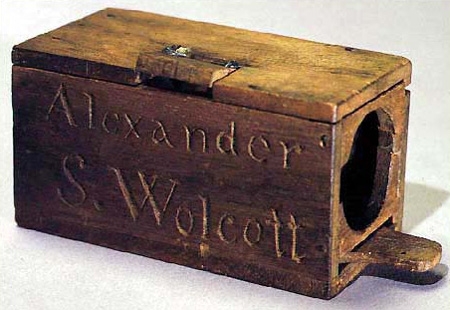 Alexander
S. Wolcott